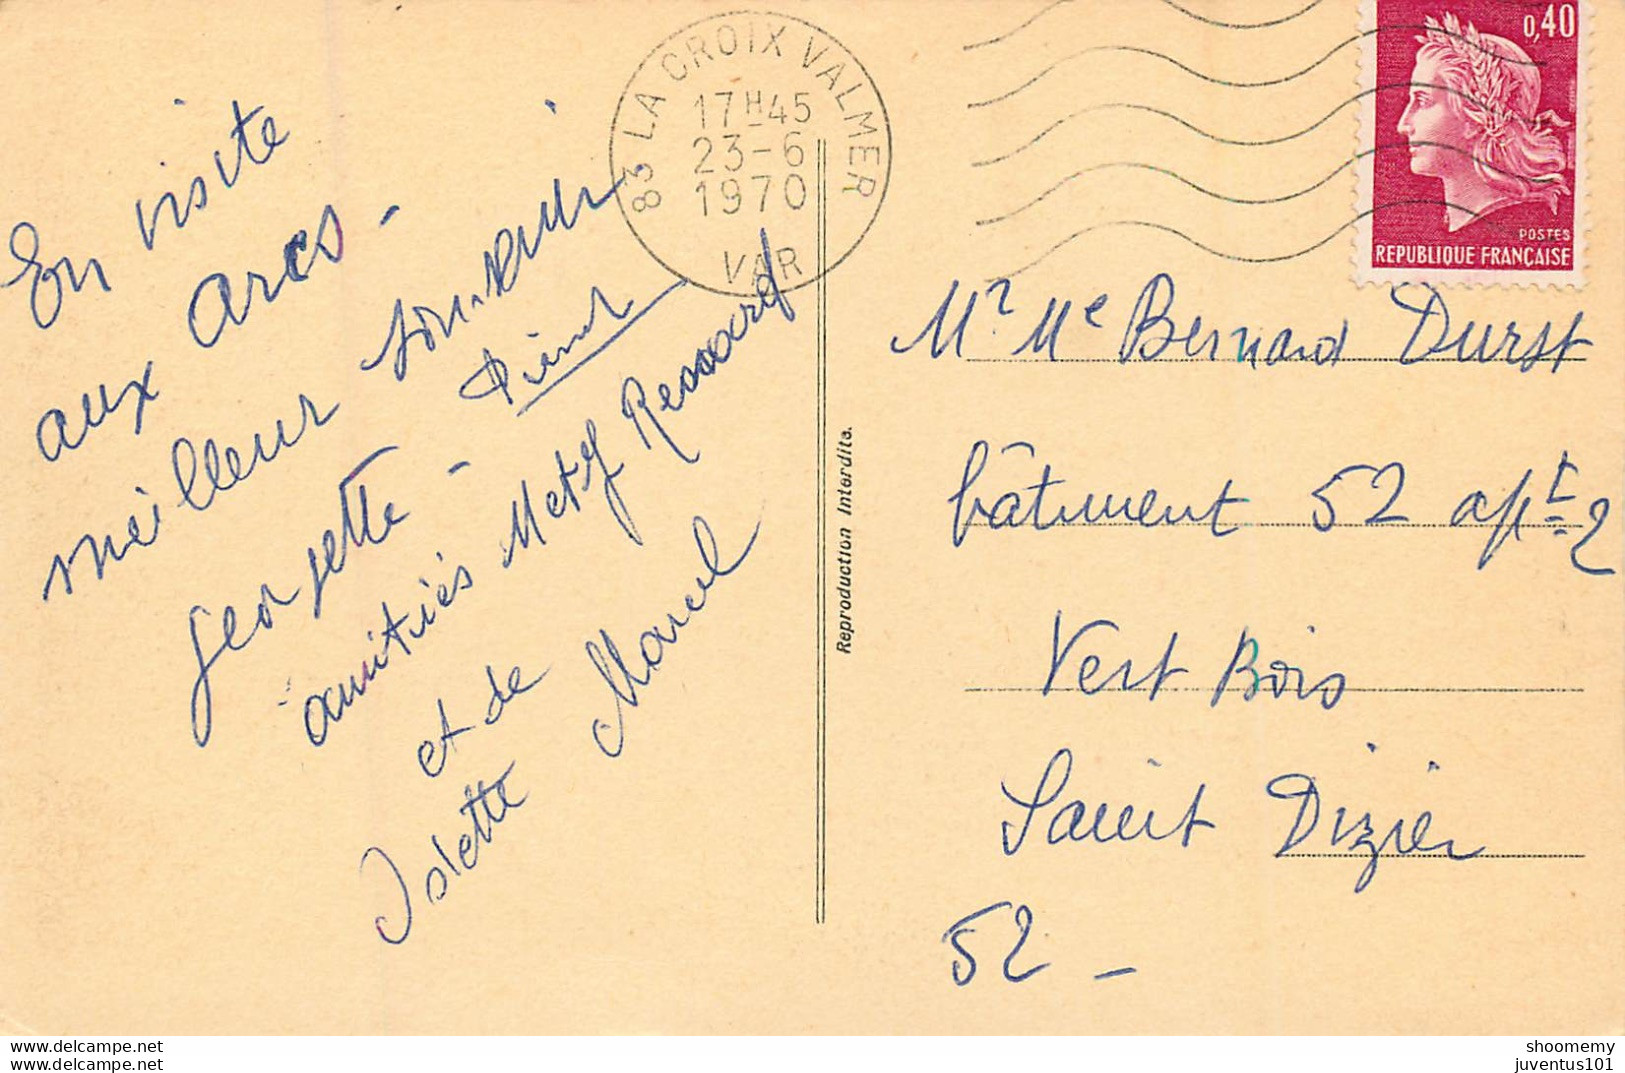 En visite
aux Arcs -
meilleur souvenir
Georgette - Pierre
amitiés M et Mme
et de
Islette Marcel
83 LA CROIX VALMER
17H45
23-6
1970
VAR
0,40
POSTES
REPUBLIQUE FRANÇAISE
Reproduction Interdite.
Mr Me Bernard Durst
bâtiment 52 apt 2
Vert Bois
Saint Dizier
52 -
shoomemy
juventus101